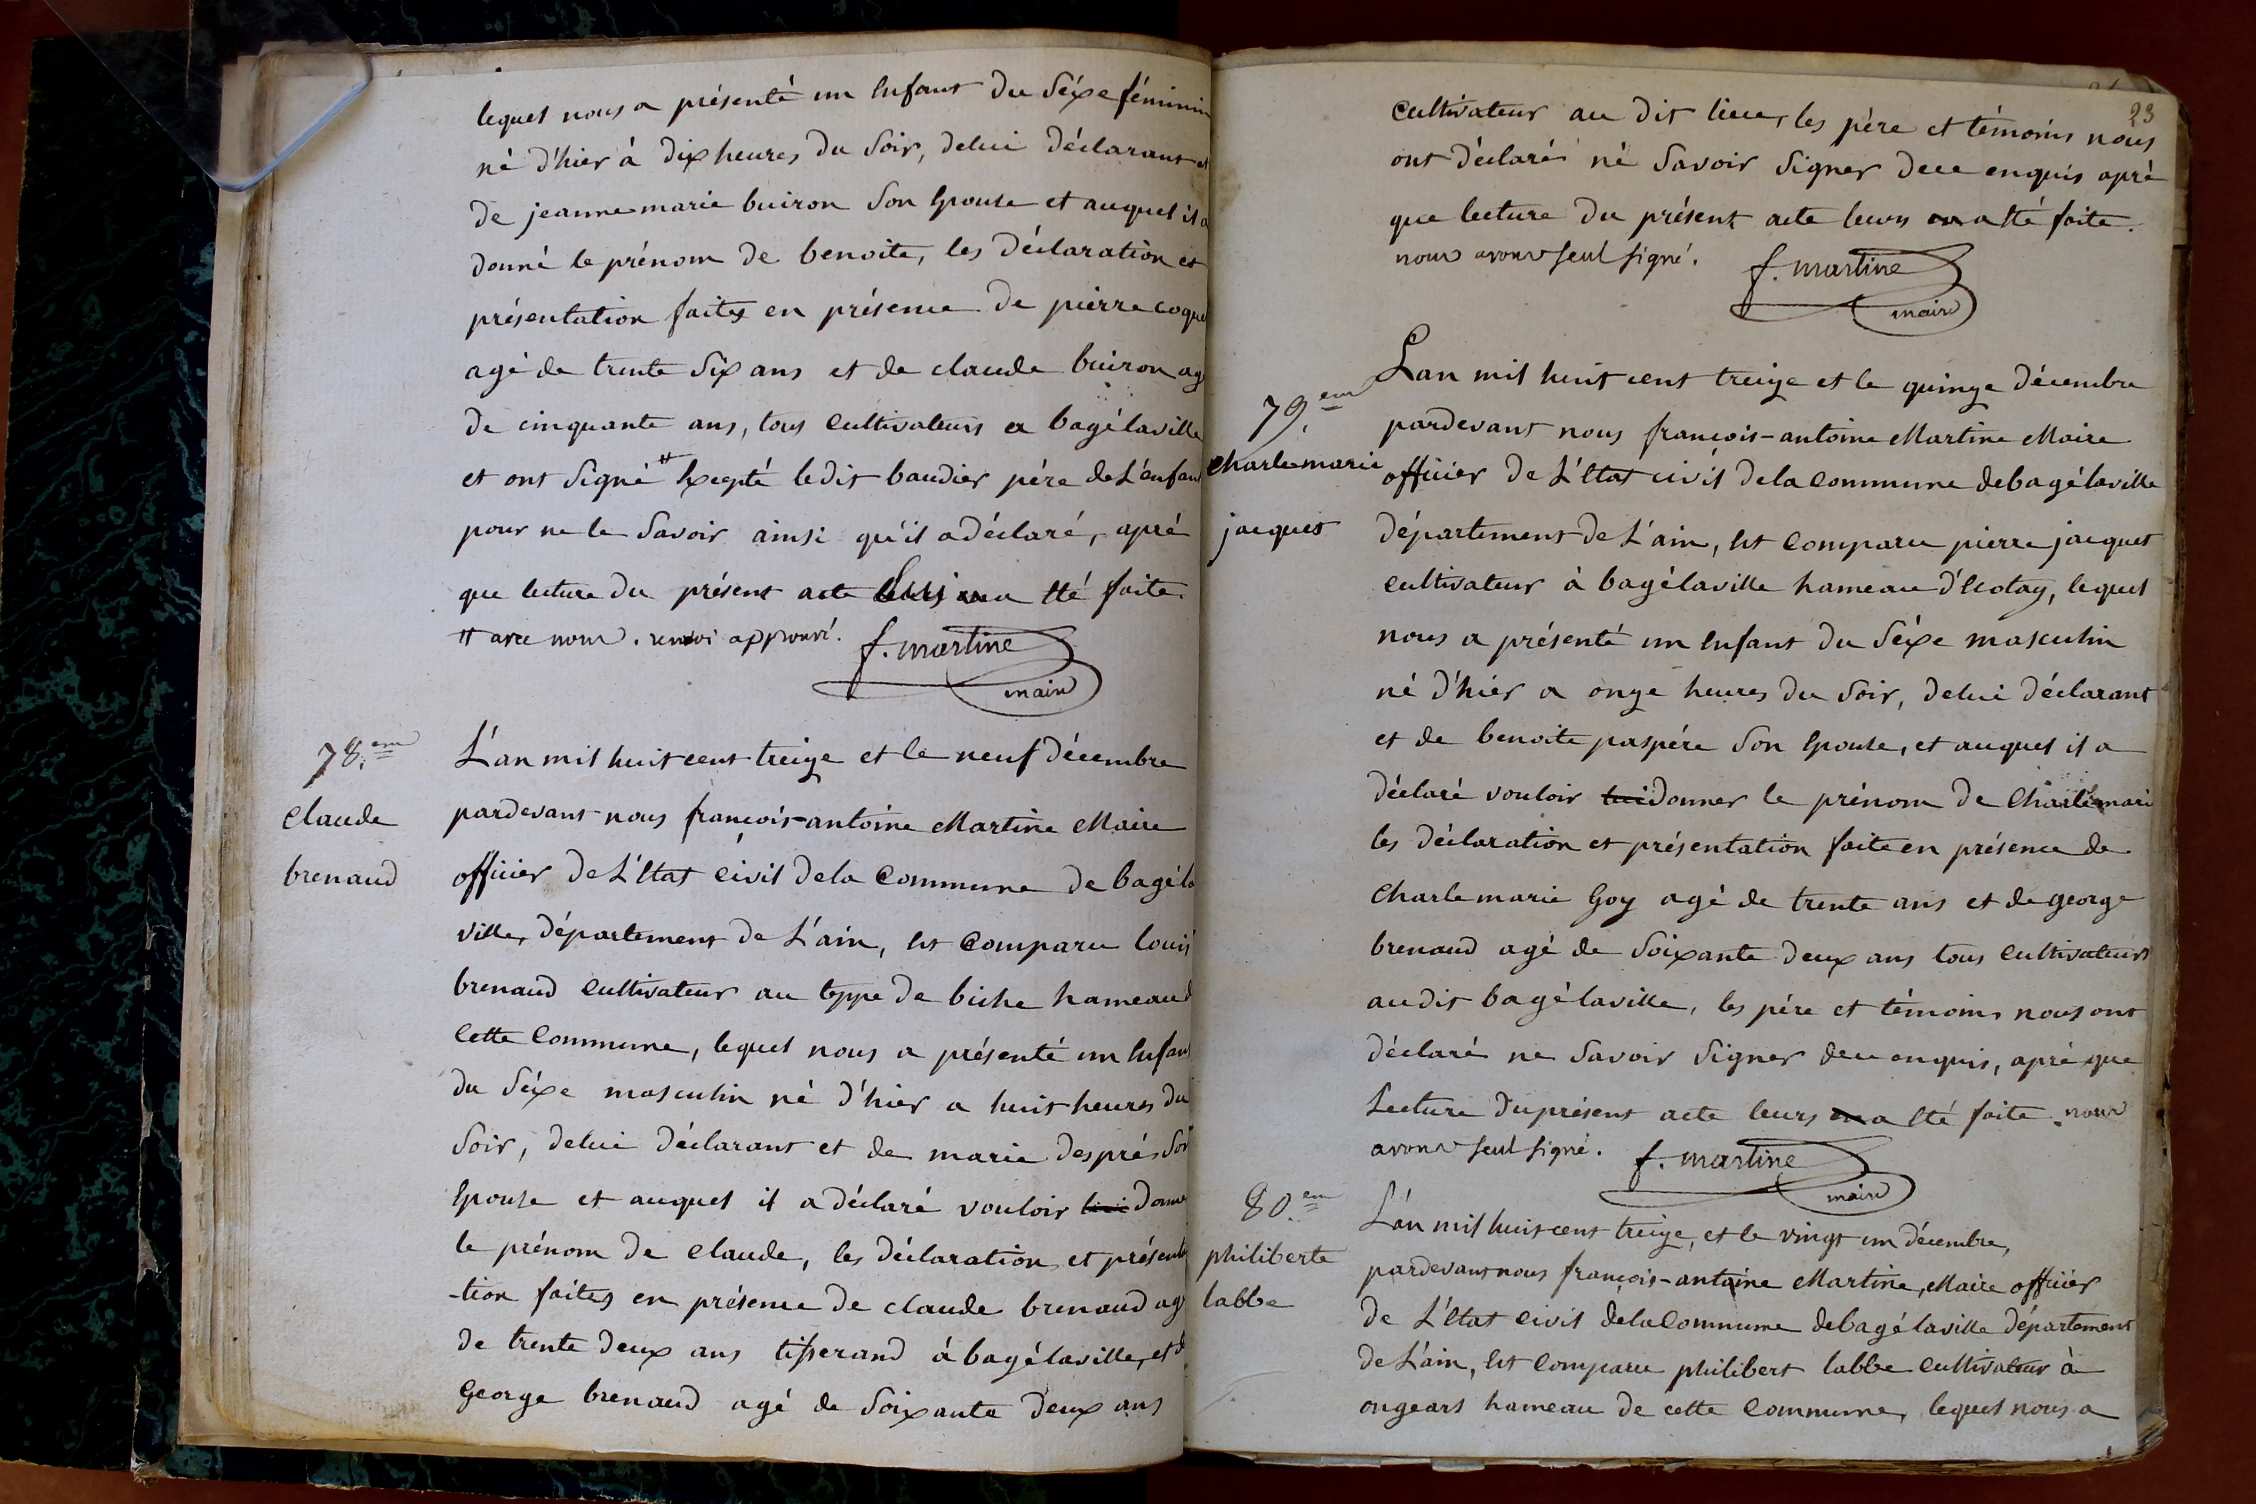 lequel nous a présenté un Enfant du Séxe féminin
né d'hier à dix heures du Soir, delui déclarant et
de jeanne marie buiron Son Epouse et auquel il a
donné le prénom de benoite, les déclaration et
présentation faites en présence de pierre coque
agé de trente Six ans et de claude buiron ag
de cinquante ans, tous cultivateurs a bagélaville
et ont Signé # Excepté ledit baudier pére de L'enfant
pour ne le Savoir ainsi qu'il a déclaré, apré
que lecture du présent acte a Eté faite.
# avec nous. renvoi approuvé. f. martine
maire
78.em
Claude
brenaud
L'an mil huit cent treize et le neuf décembre
pardevant nous françois-antoine Martine Maire
officier de L'Etat civil de la Commune de bagéla
ville, département de L'ain, Est Comparu louis
brenaud Cultivateur au teppe de biche hameau d
Cette Commune, lequel nous a présenté un Enfant
du Séxe masculin né d'hier a huit heures du
Soir, delui déclarant et de marie després Son
Epouse et auquel il a déclaré vouloir lui donner
le prénom de Claude, les déclaration et présenta
-tion faites en présence de claude brenaud ag
de trente deux ans tisserand à bagélaville, et d
George brenaud agé de Soixante deux ans
23
Cultivateur au dit lieu, les père et témoins nous
ont déclaré né Savoir Signer de ce enquis apré
que lecture du présent acte leurs en a Eté faite.
nous avons seul signé. f. martine
maire
79.em
Charlemarie
jacquet
Lan mil huit cent treize et le quinze décembre
pardevant nous françois-antoine Martine Maire
officier de L'Etat civil dela Commune debagélaville
département de L'ain, Est Comparu pierre jacquet
cultivateur à bagélaville hameau d'Ecotay, lequel
nous a présenté un Enfant du Séxe masculin
né d'hier a onze heures du Soir, delui déclarant
et de benoite paspére Son Epouse, et auquel il a
déclaré vouloir lui donner le prénom de Charlemari
les déclaration et présentation faite en présence de
Charlemarie Goy agé de trente ans et de george
brenaud agé de Soixante deux ans tous Cultivateurs
audit bagélaville, les pére et témoins nous ont
déclaré ne Savoir Signer de ce enquis, apré que
Lecture du présent acte leurs en a Eté faite. nous
avons seul signé. f. martine
maire
80.em
philiberte
labbe
L'an mil huit cent treize, et le vingt un décembre,
pardevant nous françois-antoine Martine, Maire officier
de L'Etat Civil dela Commune debagélaville département
de L'ain, Est Comparu philibert labbe Cultivateur à
ongeart hameau de cette Commune, lequel nous a